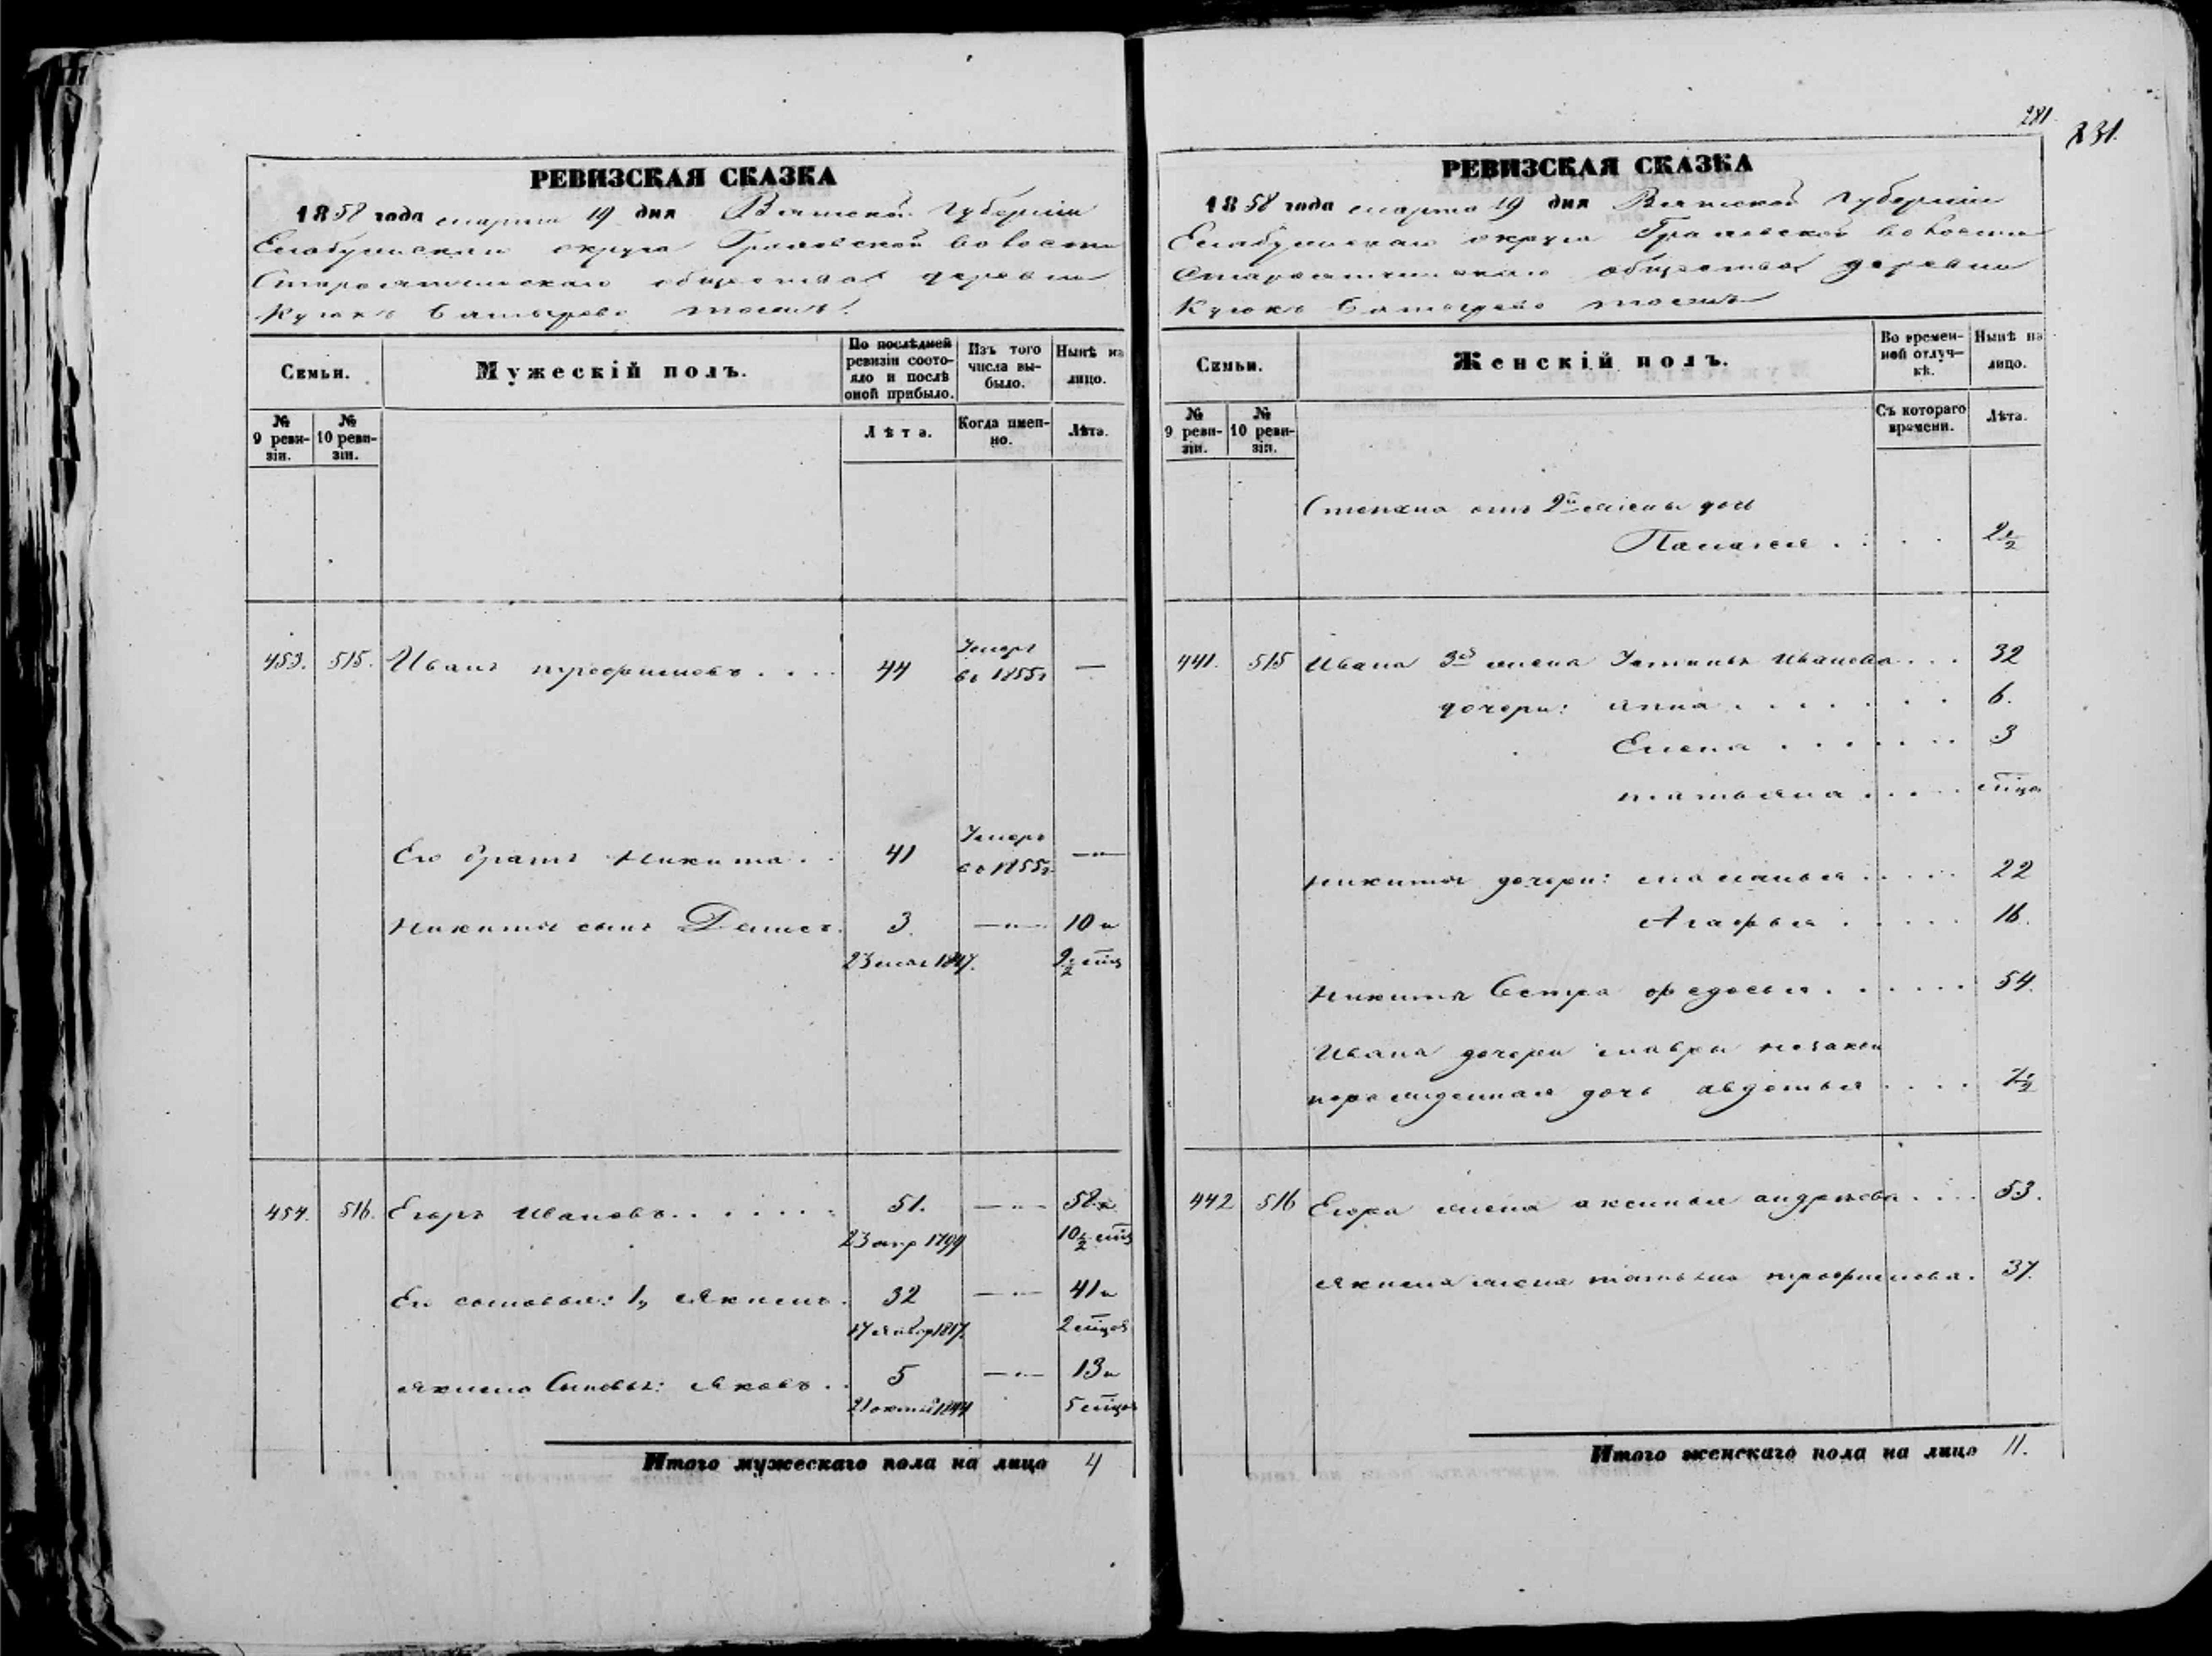 РЕВИЗСКАЯ СКАЗКА
1858 года марта 19 дня Вятской Губернии
Елабужскаго округа Граховской волости
общества деревни
Кузюкъ
Семьи.
Мужескій полъ.
По послѣдней ревизіи состояло и послѣ оной прибыло.
Изъ того числа выбыло.
Нынѣ на лицо.
№ 9 ревизіи.
№ 10 ревизіи.
Лѣта.
Когда именно.
Лѣта.
453. 515. Иванъ Трофимовъ . . . . 44 Умеръ въ 1855г —
Его братъ Никита . . 41 Умеръ въ 1855г. —"—
Никиты сынъ Денисъ. 3. —"— 10 и
23 мая 1847. 9½ мцъ
454. 516. Егоръ Ивановъ . . . . . . 51. —"— 58 и
23 апр 1799 10½ мцъ
Его сыновья: 1, Якимъ . 32 —"— 41 и
17 январ 1817. 2 мцов
Якима Сыновья: Яковъ . . 5 —"— 13 и
21 октяб 1844 5 мцов
Итого мужескаго пола на лицо 4
281
231.
РЕВИЗСКАЯ СКАЗКА
1858 года марта 19 дня Вятской Губернии
Елабужскаго округа Граховской волости
общества деревни
Кузюкъ
Семьи.
Женскій полъ.
Во временной отлучкѣ.
Нынѣ на лицо.
№ 9 ревизіи.
№ 10 ревизіи.
Съ котораго времени.
Лѣта.
Степана отъ 2й жены дочь
Палагея . . . . 2½
441. 515 Ивана 3я жена Устинья Иванова . . . 32
дочери: Анна . . . . . . . 6.
Елена . . . . . . . 3
Татьяна . . . . . мцъ
Никиты дочери: Маланья . . . . . 22
Агафья . . . . . . 16.
Никиты Сестра Федосья . . . . . . 54.
Ивана дочери Мавры незакон
норожденная дочь Авдотья . . . . ½
442 516 Егора жена Аксинья Андреева . . . . 53.
Якима жена Татьяна Трофимова. 37.
Итого женскаго пола на лицо 11.